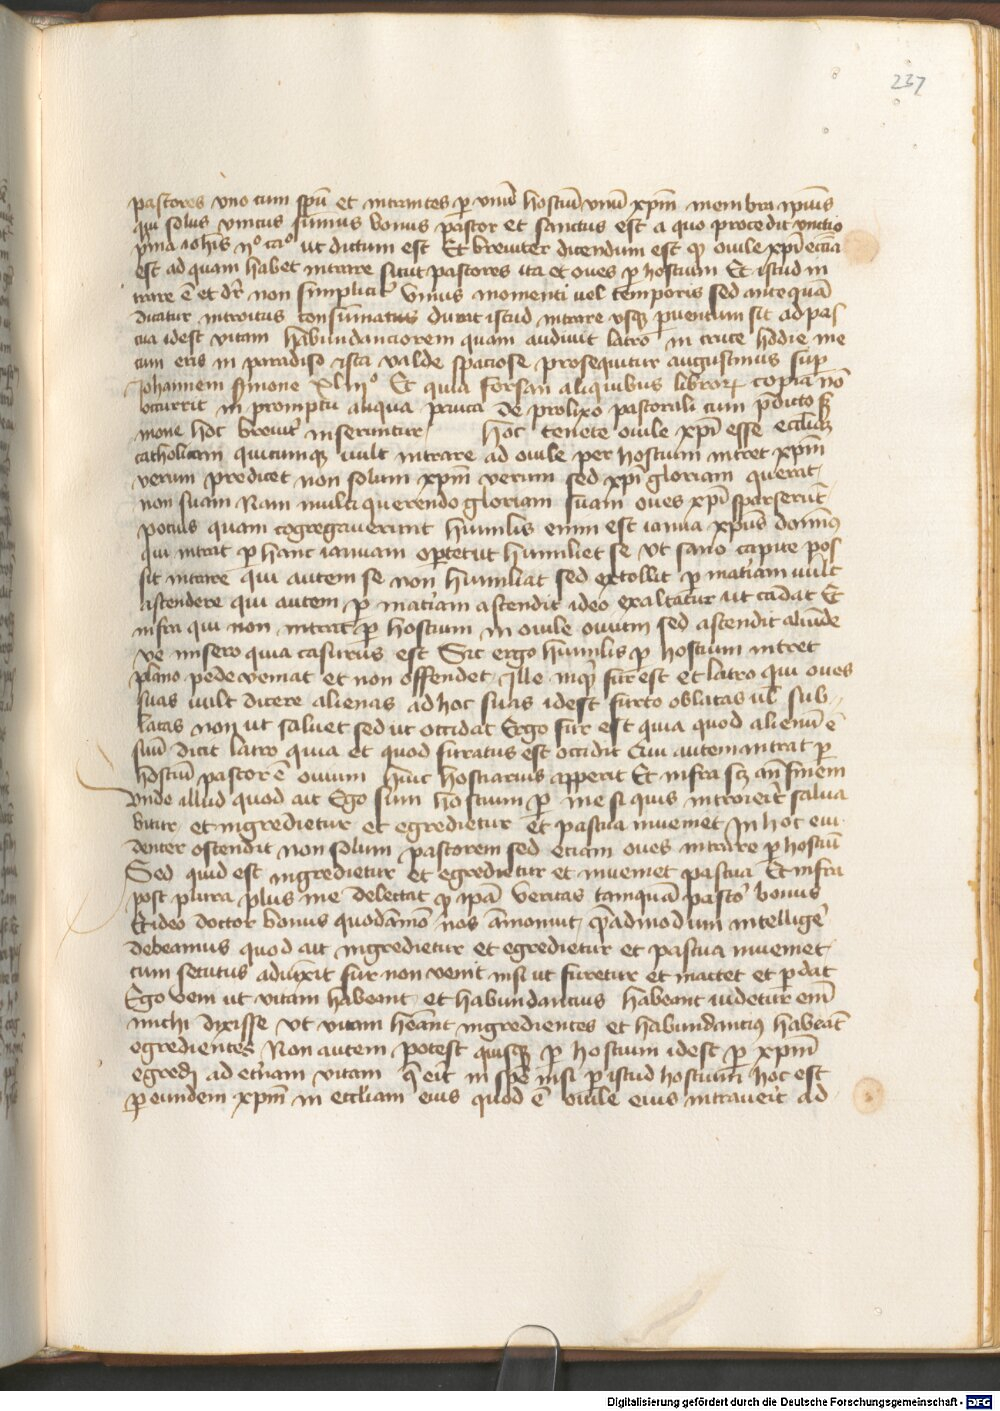 237
pastores vno cum spū et intrantes ꝑ vnū hostiū vnū xpm̄ membra ipīus
qui solus vnicus sūmus bonus pastor et sanctus est a quo procedit vnctio
pͥma iohīs 2º caº ut dictum est Et breuiter dicendum est ꝙ ouile xpī eccīa
est ad quam habet intrare sicut pastores ita et oues ꝑ hostium Et istud in
trare ē et dr̄ non simplicit᷑ vnius momenti uel temporis sed antequā
dicatur introitus consūmatus durat istud intrare vsqꝫ ꝑuentum sit ad pas
cua idest vitam habundanciorem quam audiuit latro in cruce hodie me
cum eris in paradiso ista valde spaciose prosequitur augustinus suꝑ
Johannem sermone xlmº Et quia forsan aliquibus libroꝝ copia nō
occurrit in promptu aliqua pauca de prolixo pastorali cum p̄dicto ser
mone hoc breuit᷑ inseruntur hoc tenete ouile xpī esse eccliaꝫ
catholicam quicumqꝫ uult intrare ad ouile per hostium intret xpm̄
verum predicet non solum xpm̄ verum sed xpī gloriam querat
non suam Nam multi querendo gloriam suam oues xpī sparserūt
pocius quam cōgregauerunt humilis enim est ianua xpūs dominꝰ
qui intrat ꝑ hanc ianuam oꝑtet ut humiliet se vt sano capite pos
sit intrare qui autem se non humiliat sed extollit ꝑ mat᷑iam uult
ascendere qui autem ꝑ mat᷑iam ascendit ideo exaltatur ut cadat Et
infra qui non intrat ꝑ hostium in ouile ouium sed ascendit aliunde
ve misero quia casurus est Sic ergo humilis ꝑ hostium intret
plano pede veniat et non offendet Ille inqͥt fur est et latro qui oues
suas uult dicere alienas ad hoc suas idest furto oblatas ul̄ sub
latas non ut saluet sed ut occidat Ergo fur est quia quod alienū ē
suū dicit latro quia et quod furatus est occidit Qui autem intrat ꝑ
hostiū pastor ē ouium huic hostiarius apperit Et infra scꝫ an̄ finem
Vnde illud quod ait Ego sum hostium ꝑ me si quis introierit salua
bitur et ingredietur et egredietur et pascua inueniet In hoc eui
denter ostendit non solum pastorem sed eciam oues intrare ꝑ hostiū
Sed quid est ingredietur et egredietur et inueniet pascua Et infra
post plura plus me delectat ꝙ ipā veritas tamquā pastor bonus
Et ideo doctor bonus quodāmō nos āmonuit quēadmodum intelligē
debeamus quod ait ingredietur et egredietur et pascua inueniet
cum secutus adiūxit fur non venit nisi ut furetur et mactet et ꝑdat
Ego veni ut vitam habeant et habundancius habeant uidetur em̄
michi dixisse vt vitam hēant ingredientes et habundanciꝰ habeāt
egredientes Non autem potest quisqꝫ ꝑ hostium idest ꝑ xpm̄
egredi ad et᷑nam vitam q̄ erit in spē nisi ꝑ istud hostium hoc est
ꝑ eundem xpm̄ in eccliam eius quod ē ouile eius intrauerit ad
Digitalisierung gefördert durch die Deutsche Forschungsgemeinschaft - DFG